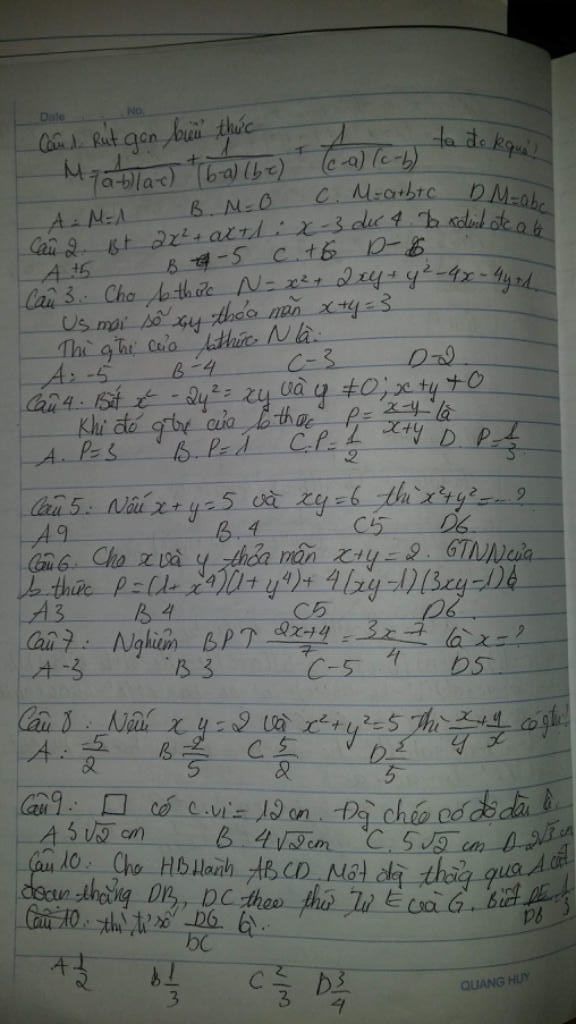 Date No.
Câu 1. Rút gọn biểu thức
M = 1/(a-b)(a-c) + 1/(b-a)(b-c) + 1/(c-a)(c-b) ta đc kquả?
A = M=1 B. M=0 C. M=a+b+c D M=abc
Câu 2. Bt 2x²+ax+1 : x-3 dư 4. Ta đc a là
A +5 B -5 C. +6 D -6
Câu 3: Cho b thức N = x² + 2xy + y² - 4x - 4y + 1.
Vs mọi số x,y thỏa mãn x+y=3
Thì gtrị của bthức N là:
A: -5 B -4 C -3 D -2
Câu 4: Biết x² - 2y² = xy và y ≠ 0; x+y ≠ 0
Khi đó gtrị của b thức P = x-y/x+y là
A. P=3 B. P=1 C. P=1/2 D. P=1/3
Câu 5: Nếu x+y=5 và xy=6 thì x²+y²=...?
A 9 B. 4 C 5 D 6
Câu 6. Cho x và y thỏa mãn x+y=2. GTNN của
b thức P=(1+x⁴)(1+y⁴)+4(xy-1)(3xy-1) là
A 3 B 4 C 5 D 6
Câu 7: Nghiệm BPT 2x+4/7 = 3x-7/4 là x=?
A -3 B 3 C -5 D 5
Câu 8: Nếu x y=2 và x²+y²=5 thì x/y + y/x có gtrị
A: -5/2 B -2/5 C 5/2 D 2/5
Câu 9: □ có c.vi = 12cm. Đg chéo có độ dài là
A 3√2 cm B. 4√2 cm C. 5√2 cm D. 2√3 cm
Câu 10: Cho HBHành ABCD. Một đg thẳng qua A cắt
đoạn thẳng DB, DC theo thứ tự E và G. Biết DE/DB = 1/3
Câu 10: thì tỉ số DG/DC là:
A 1/2 B 1/3 C 2/3 D 3/4
QUANG HUY